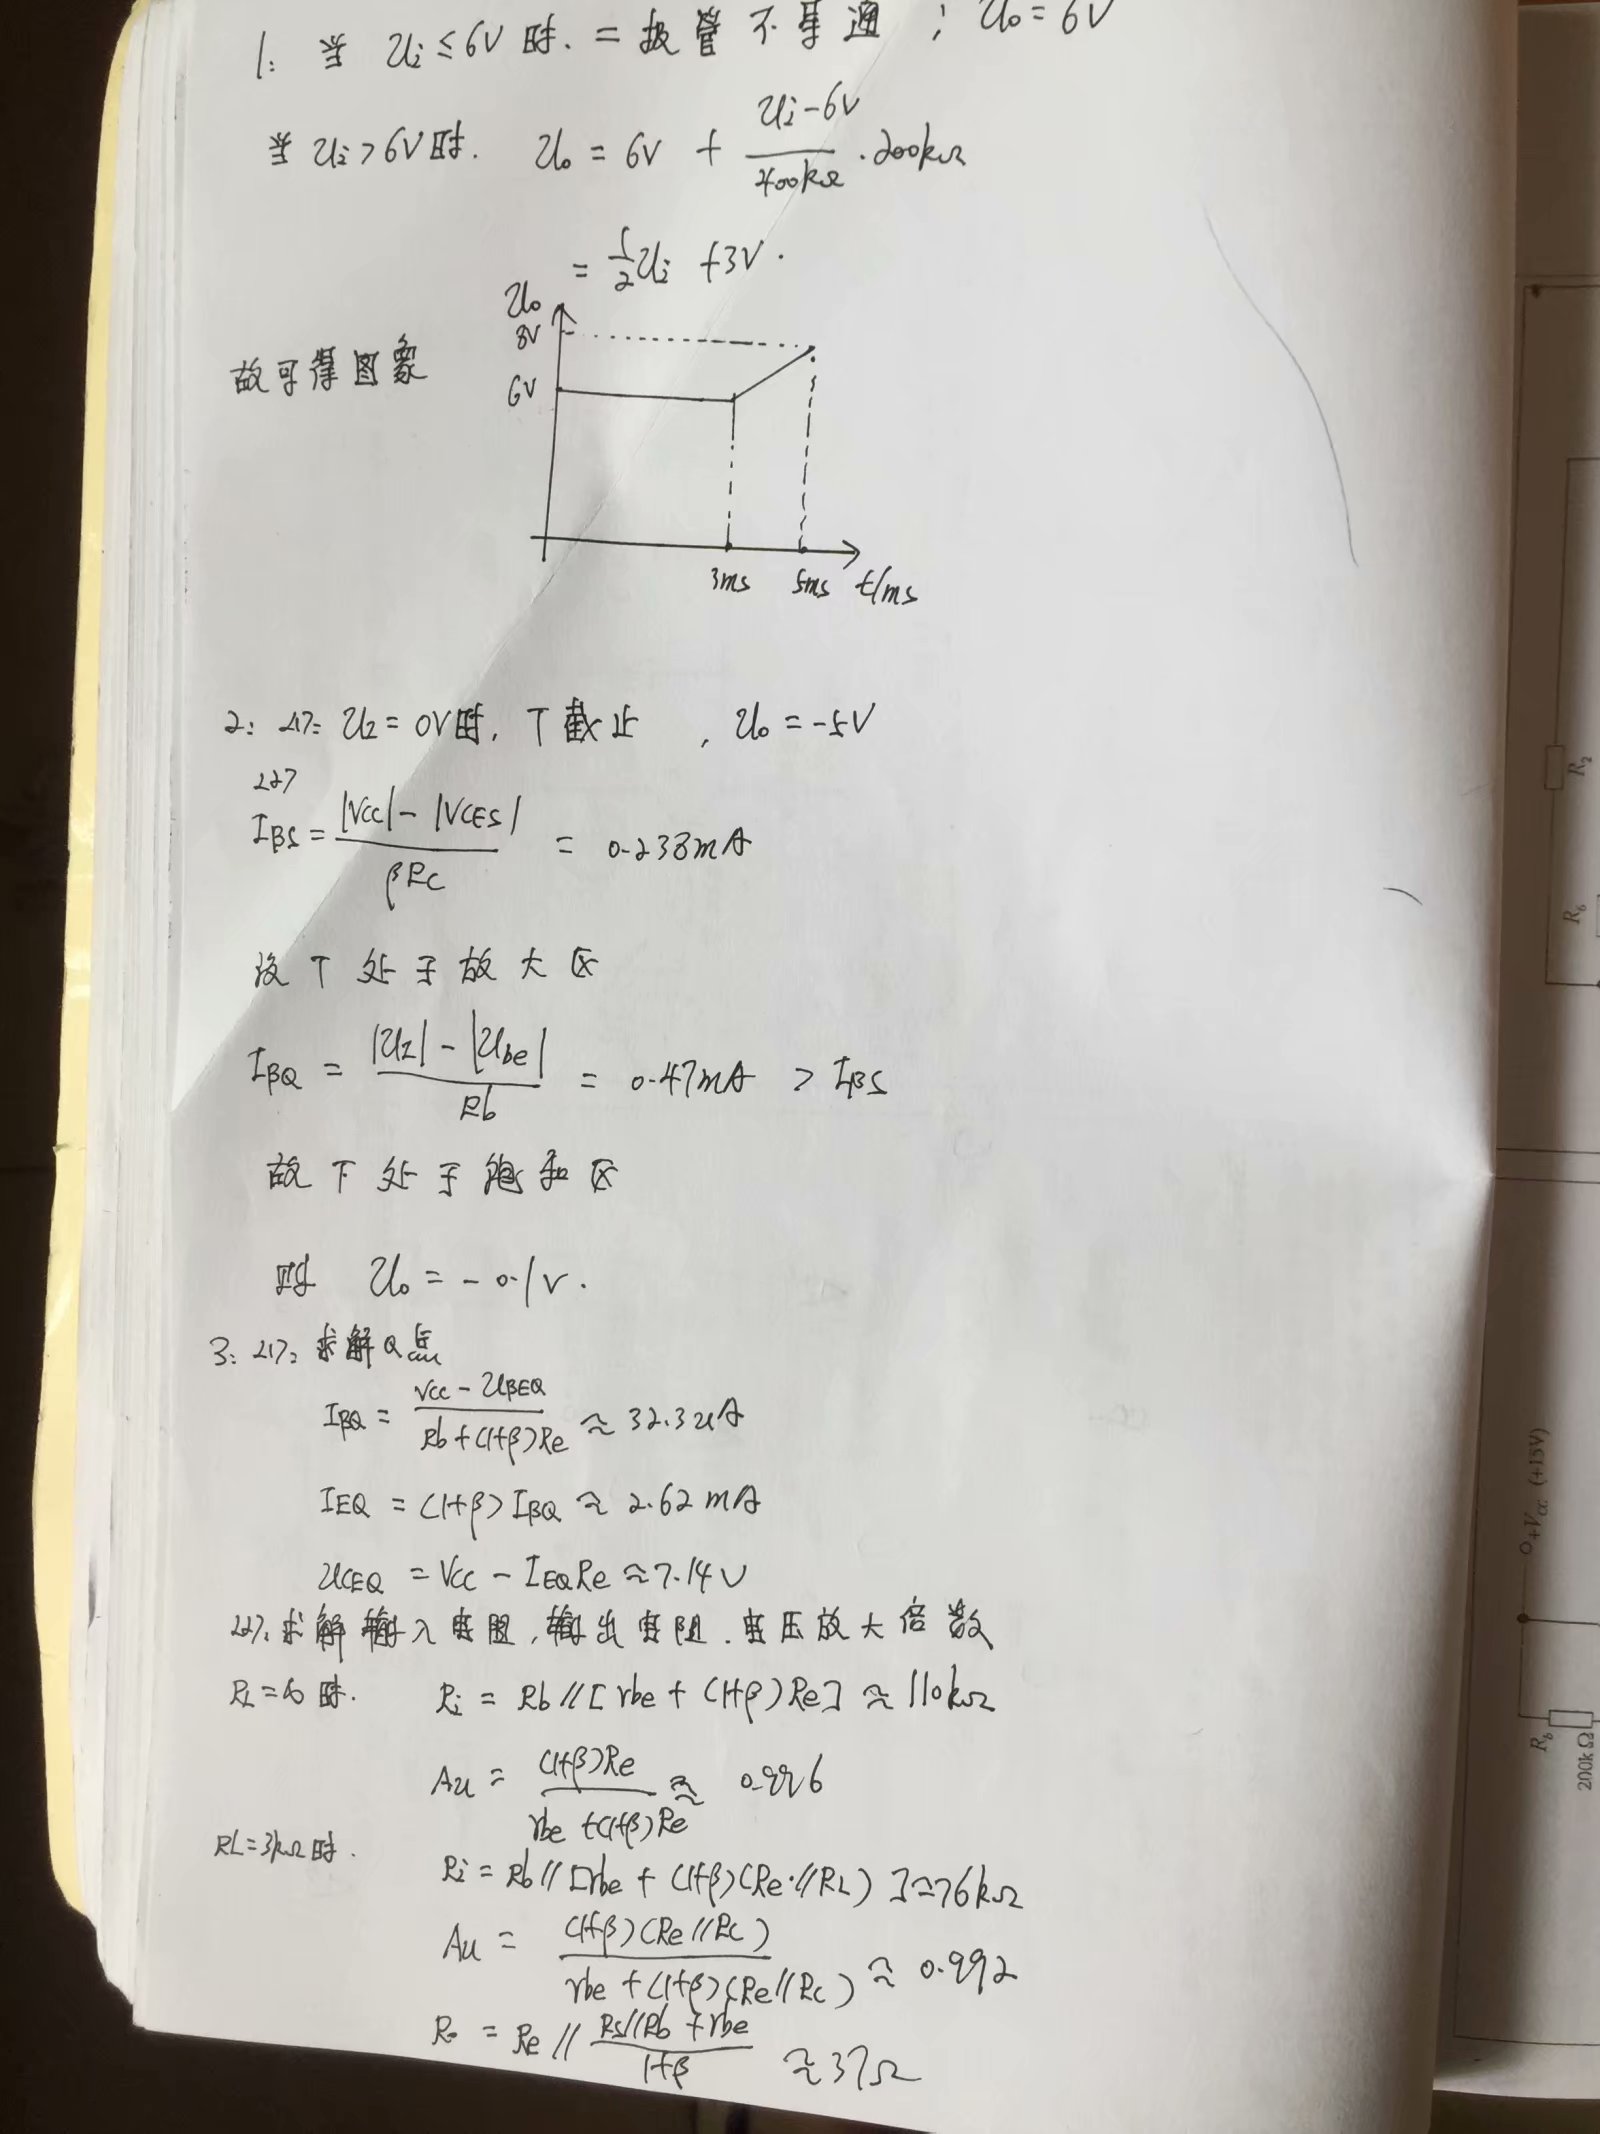 1: 当 Ui ≤ 6V 时. 二极管不导通 ; Uo = 6V
当 Ui > 6V 时. Uo = 6V + (Ui - 6V)/(400kΩ) · 200kΩ
= 1/2 Ui + 3V .
故可得图象
Uo
8V
6V
3ms 5ms t/ms
2: <1>: UI = 0V时, T截止 , Uo = -5V
<2>
IBS = (|VCC| - |VCES|)/(βRc) = 0.238mA
设 T 处于放大区
IBQ = (|UI| - |Ube|)/(Rb) = 0.47mA > IBS
故 T 处于饱和区
则 Uo = -0.1V .
3: <1>: 求解Q点
IBQ = (VCC - UBEQ)/(Rb + (1+β)Re) ≈ 32.3uA
IEQ = (1+β) IBQ ≈ 2.62 mA
UCEQ = VCC - IEQRe ≈ 7.14V
<2>: 求解输入电阻, 输出电阻. 电压放大倍数
RL = ∞ 时. Ri = Rb // [rbe + (1+β)Re] ≈ 110kΩ
Au = ((1+β)Re)/(rbe + (1+β)Re) ≈ 0.996
RL = 3kΩ时. Ri = Rb // [rbe + (1+β)(Re // RL) ] ≈ 76kΩ
Au = ((1+β)(Re // Rc))/(rbe + (1+β)(Re // Rc)) ≈ 0.992
Ro = Re // (Rs//Rb + rbe)/(1+β) ≈ 37Ω
R2
R6
+VCC (+15V)
Rb
200kΩ